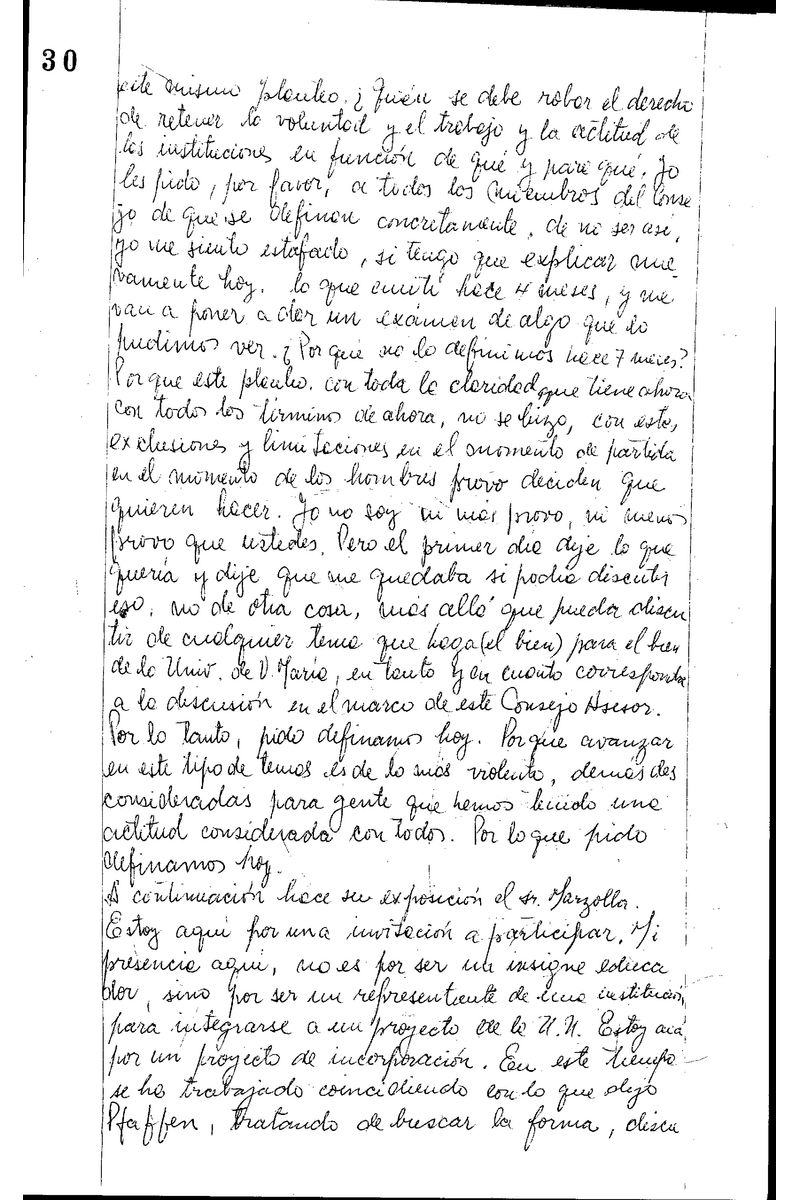 30
este mismo planteo. ¿Quién se debe robar el derecho
de retener la voluntad y el trabajo y la actitud de
las instituciones en función de qué y para qué. Yo
les pido, por favor, a todos los miembros del Conse
jo de que se definan concretamente, de no ser así,
yo me siento estafado, si tengo que explicar nue
vamente hoy. lo que emití hace 4 meses, y me
van a poner a dar un exámen de algo que lo
pudimos ver. ¿Por qué no lo definimos hace 7 meses?
Porque este planteo. con toda la claridad que tiene ahora
con todos los términos de ahora, no se hizo, con estas,
exclusiones y limitaciones en el momento de partida
en el momento de los hombres provo deciden que
quieren hacer. Yo no soy ni más provo, ni menos
provo que ustedes. Pero el primer día dije lo que
quería y dije que me quedaba si podía discutir
eso, no de otra cosa, más allá que pueda discu
tir de cualquier tema que haga (el bien) para el bien
de la Univ. de V. María, en tanto y en cuanto corresponda
a la discusión en el marco de este Consejo Asesor.
Por lo tanto, pido definamos hoy. Porque avanzar
en este tipo de temas es de lo más violento, demás des
consideradas para gente que hemos tenido una
actitud considerada con todos. Por lo que pido
definamos hoy.
A continuación hace su exposición el sr. Marzolla.
Estoy aquí por una invitación a participar. Mi
presencia aquí, no es por ser un insigne educa
dor, sino por ser un representante de una institución,
para integrarse a un proyecto de la U.N. Estoy acá
por un proyecto de incorporación. En este tiempo
se ha trabajado coincidiendo con lo que dijo
Pfaffen, tratando de buscar la forma, discu